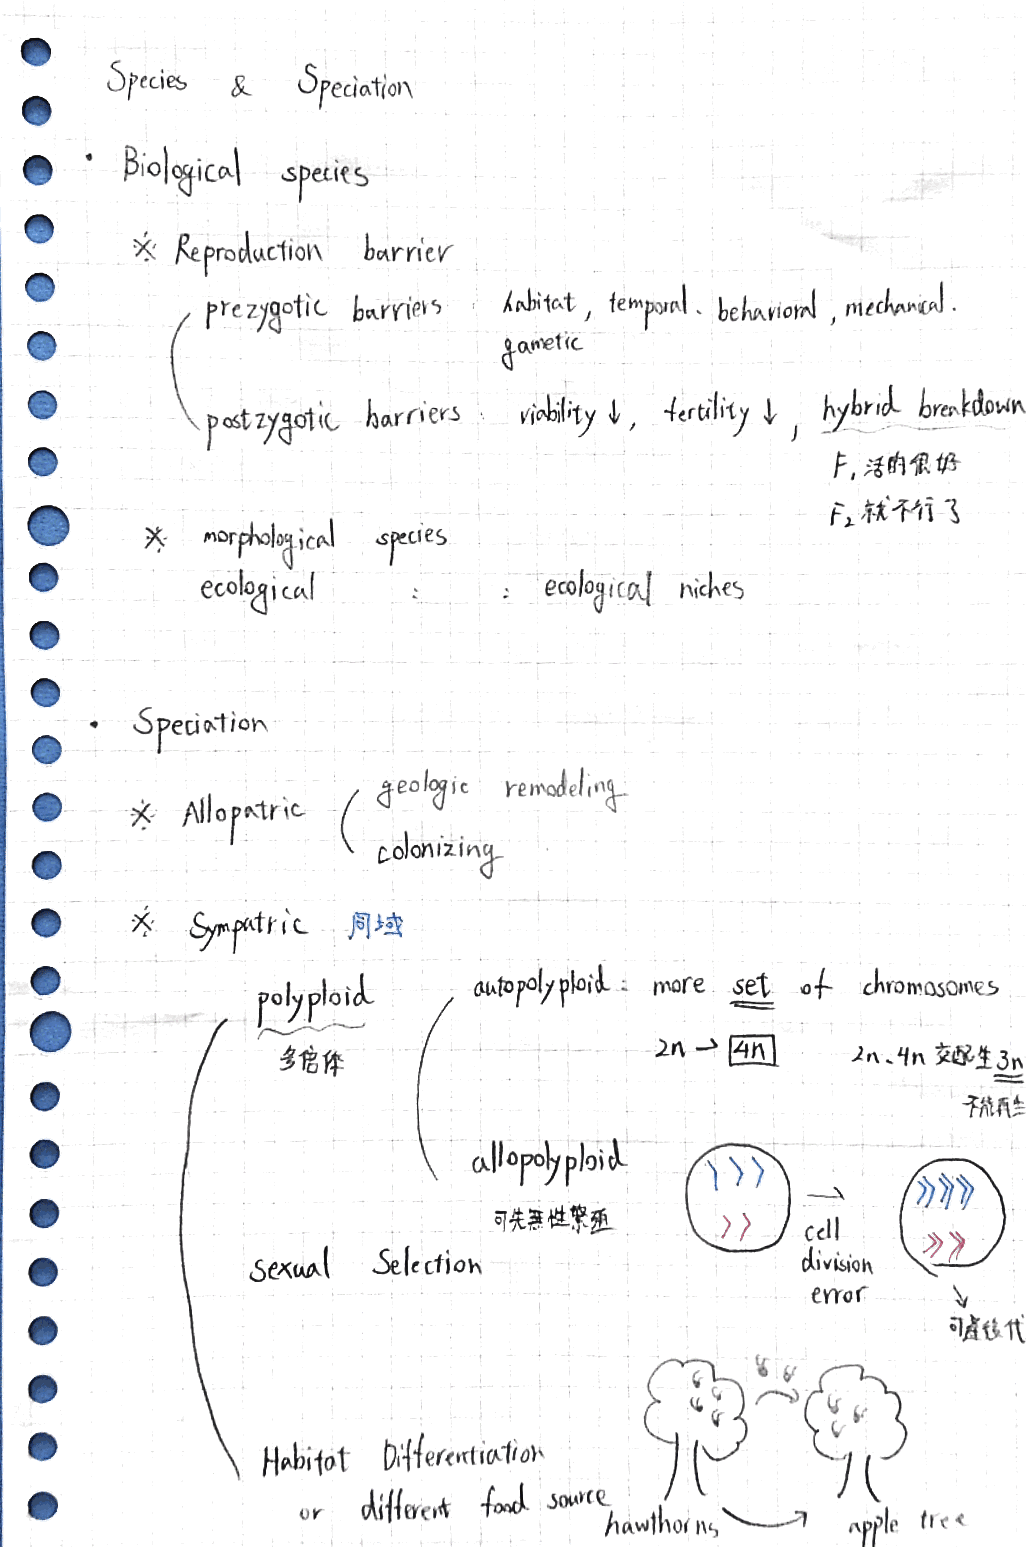 Species & Speciation
· Biological species
※ Reproduction barrier
prezygotic barriers : habitat, temporal、behavioral, mechanical.
gametic
postzygotic barriers : viability ↓, fertility ↓, hybrid breakdown
F₁ 活的很好
F₂ 就不行了
※ morphological species
ecological : : ecological niches
· Speciation
※ Allopatric
geologic remodeling
colonizing
※ Sympatric 同域
polyploid
多倍体
autopolyploid : more set of chromosomes
2n → 4n 2n、4n 交配生 3n
不能再生
allopolyploid
可先無性繁殖
cell
division
error
可產後代
sexual Selection
Habitat Differentiation
or different food source
hawthorns
apple tree